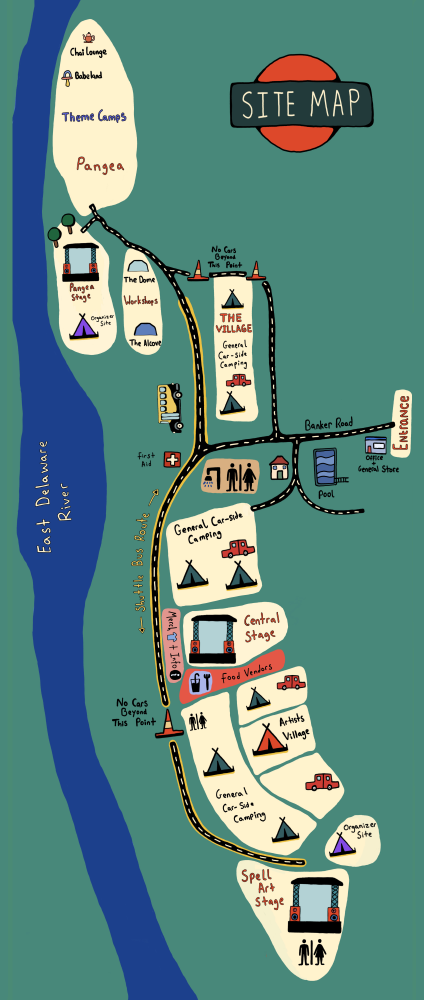 Chai Lounge
Babeland
Theme Camps
Pangea
SITE MAP
Pangea
Stage
Organizer
Site
The Dome
Workshops
The Alcove
No Cars
Beyond
This Point
THE
VILLAGE
General
Car-side
Camping
Entrance
Banker Road
Office
+
General Store
Pool
First
Aid
East Delaware
River
Shuttle Bus Route
General Car-side
Camping
Central
Stage
Merch + Info
Food Vendors
No Cars
Beyond
This Point
Artists
Village
General
Car-Side
Camping
Organizer
Site
Spell
Art
Stage